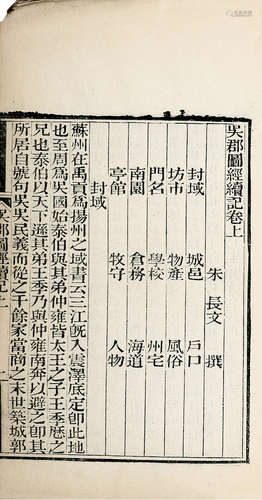 吳郡圖經續記卷上
朱長文 撰
封域 城邑 戶口
坊市 物產 風俗
門名 學校 州宅
南園 倉務 海道
亭館 牧守 人物
封域
蘇州在禹貢為揚州之域書云三江既入震澤底定卽此地
也至周為吳國始泰伯與其弟仲雍皆太王之子王季歷之
兄也泰伯以天下遜其弟王季乃與仲雍南奔以避之卽其
所居自號句吳吳民義而從之千餘家當商之末世築城郭
吳郡圖經續記上